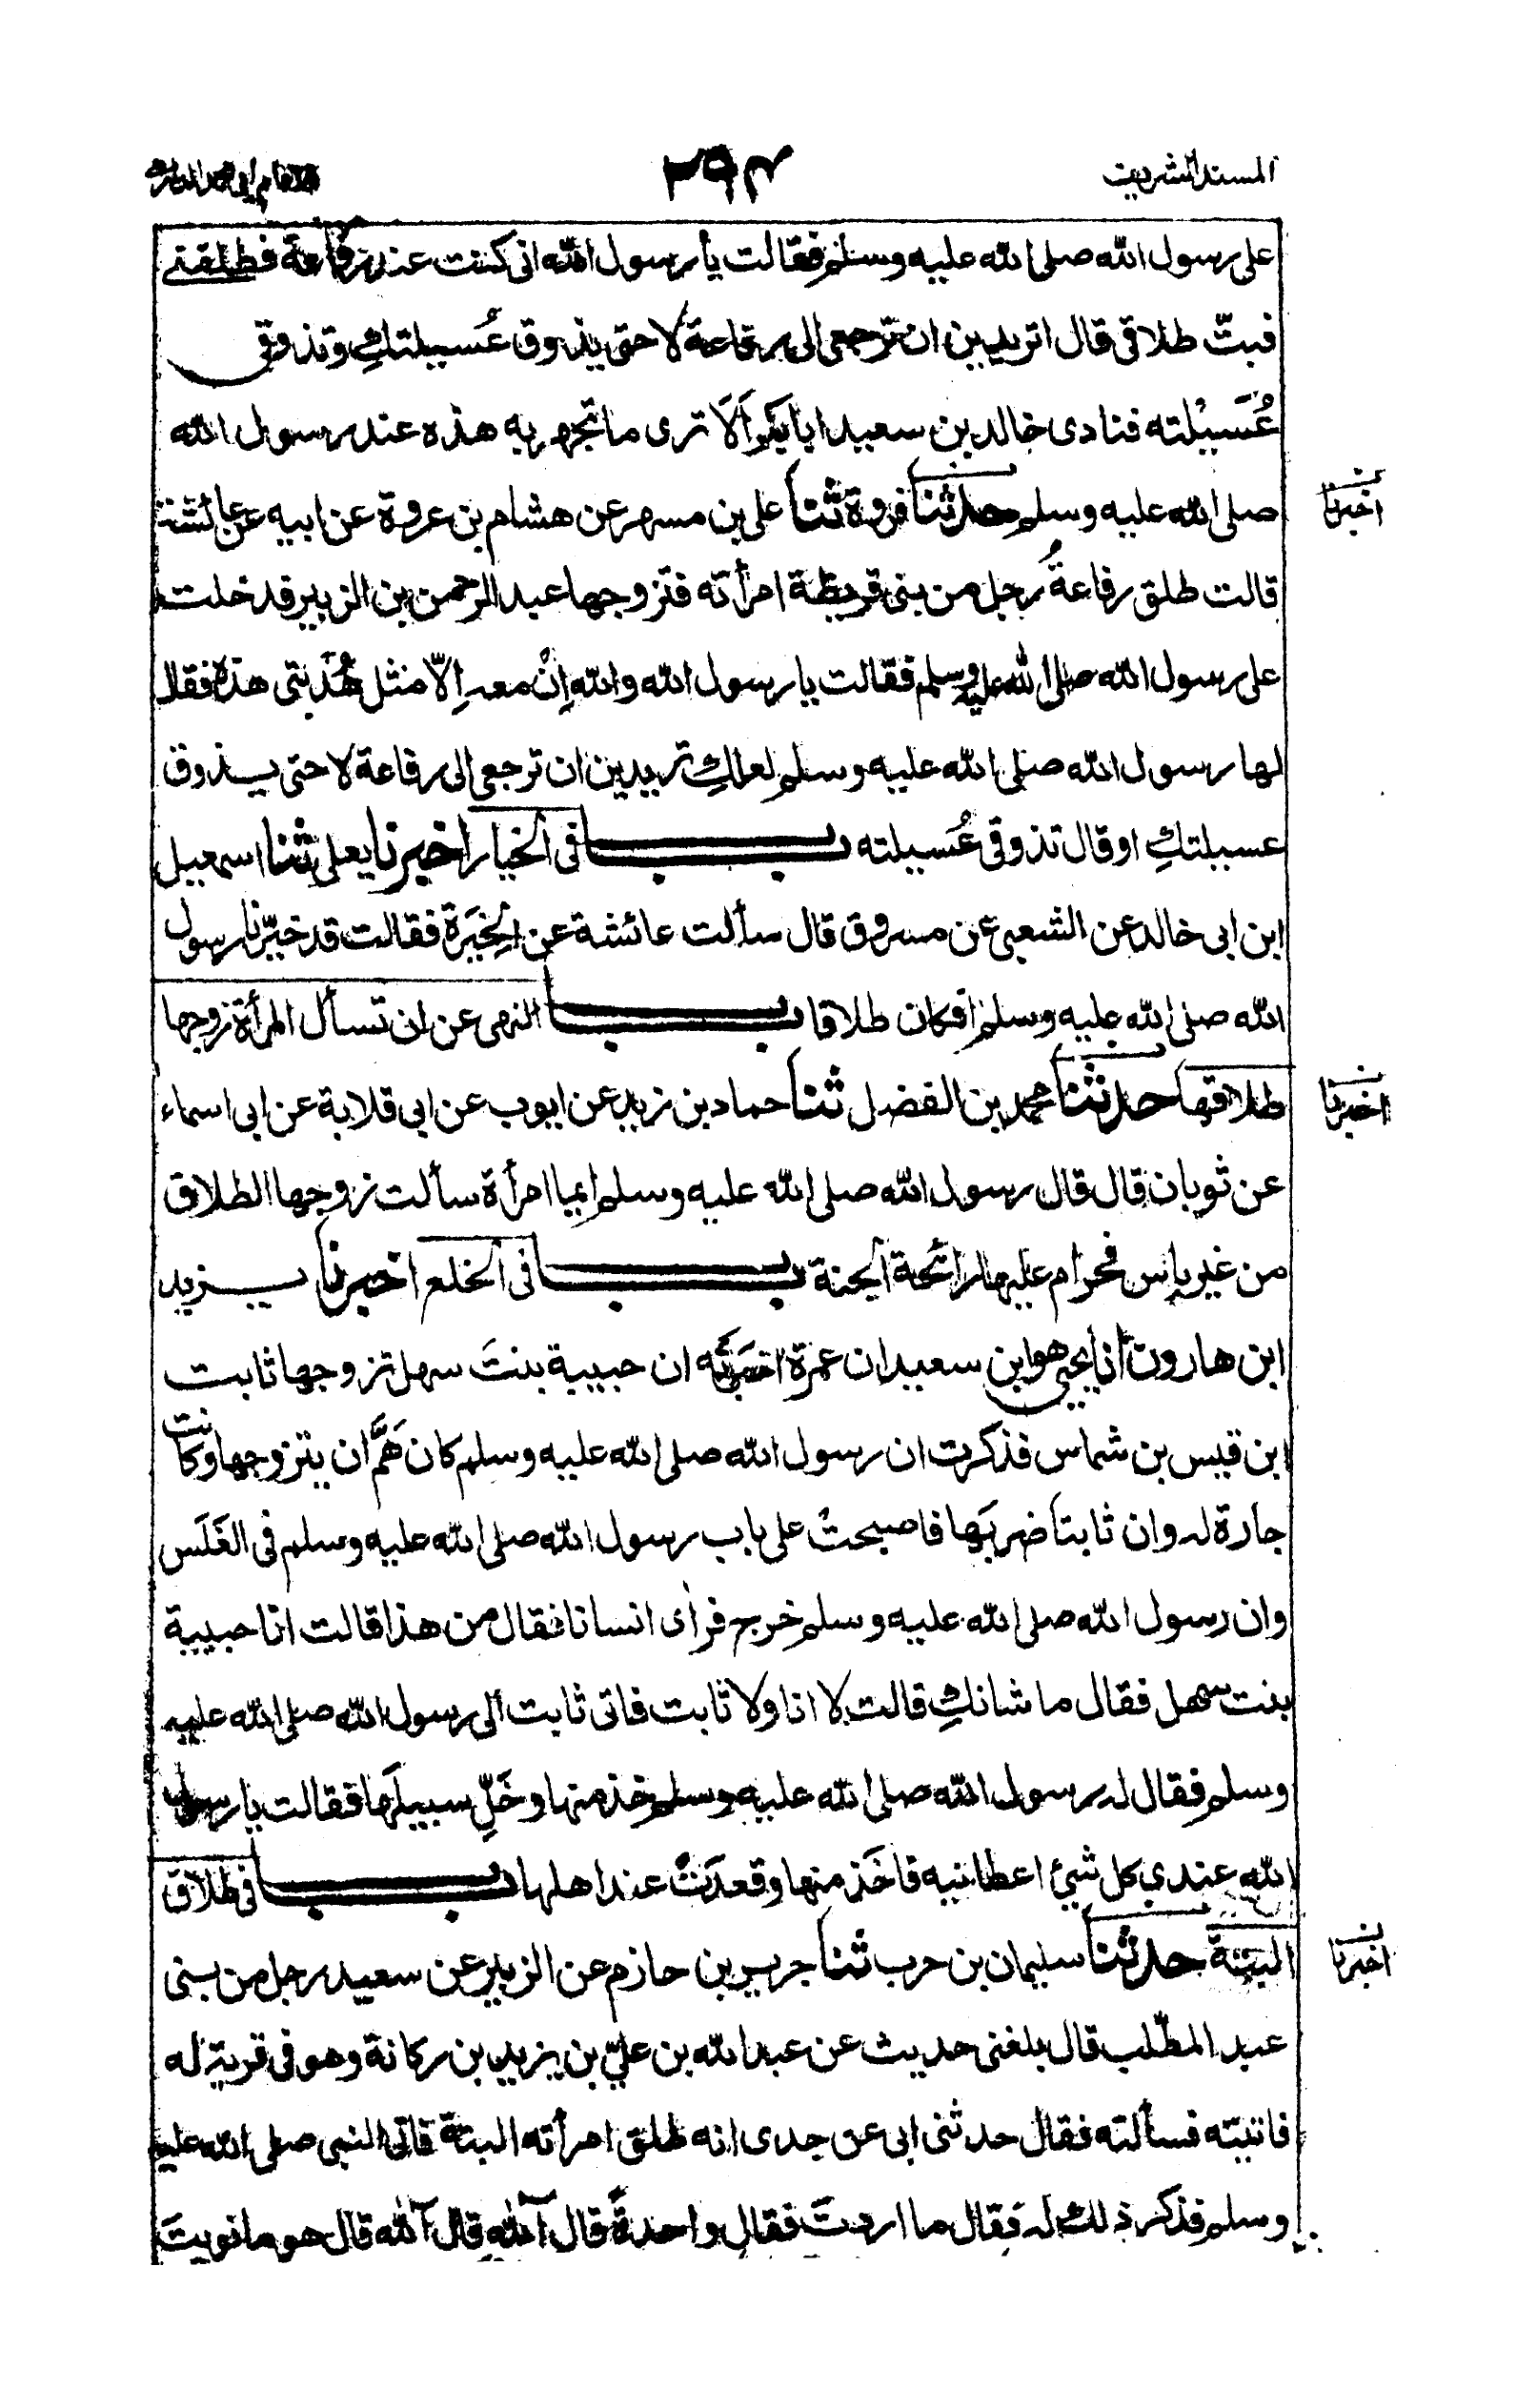 المسند الشريف
على رسول الله صلى الله عليه وسلم فقالت يا رسول الله انى كنت عند رفاعة فطلقنى
فبتّ طلاقى قال اتريدين ان ترجعى الى رفاعة لا حتى يذوق عُسيلتكِ وتذوقى
عُسَيْلته فنادى خالد بن سعيد ابا بكر اَلَا ترى ما تجهر به هذه عند رسول الله
صلى الله عليه وسلم حدثنا فروة ثنا على بن مسهر عن هشام بن عروة عن ابيه عن عائشة
اخبرنا
قالت طلق رفاعةُ رجل من بنى قريظة امرأته فتزوجها عبد الرحمن بن الزبير فدخلت
على رسول الله صلى الله عليه وسلم فقالت يا رسول الله والله اِنْ معه اِلّا مثل هُدْبتى هذه فقال
لها رسول الله صلى الله عليه وسلم لعلكِ تريدين ان ترجعى الى رفاعة لا حتى يذوق
عسيلتكِ او قال تذوقى عُسَيلته باب فى الخيار اخبرنا يعلى ثنا اسمعيل
ابن ابى خالد عن الشعبى عن مسروق قال سألت عائشة عن الخِيَرَة فقالت قد خيّرنا رسول
الله صلى الله عليه وسلم افكان طلاقا باب النهى عن ان تسأل المرأة زوجها
طلاقها حدثنا محمد بن الفضل ثنا حماد بن زيد عن ايوب عن ابى قلابة عن ابى اسماء
اخبرنا
عن ثوبان قال قال رسول الله صلى الله عليه وسلم ايما امرأة سألت زوجها الطلاق
من غير باس فحرام عليها رائحة الجنة باب فى الخلع اخبرنا يزيد
ابن هارون انا يحيى هو ابن سعيد ان عمرة اخبرته ان حبيبة بنتَ سهل تزوجها ثابت
ابن قيس بن شماس فذكرت ان رسول الله صلى الله عليه وسلم كان هَمَّ ان يتزوجها وكانت
جارة له وان ثابتا ضربَها فاصبحتْ على باب رسول الله صلى الله عليه وسلم فى الغَلَس
وان رسول الله صلى الله عليه وسلم خرج فرأى انسانا فقال من هذا قالت انا حبيبة
بنت سهل فقال ما شانكِ قالت لا انا ولا ثابت فاتى ثابت الى رسول الله صلى الله عليه
وسلم فقال له رسول الله صلى الله عليه وسلم خذ منها وخَلِّ سبيلَها فقالت يا رسول
الله عندي كل شيئ اعطانيه فاخَذ منها وقعدَتْ عند اهلها باب فى طلاق
البتة حدثنا سليمان بن حرب ثنا جرير بن حازم عن الزبير عن سعيد رجل من بنى
اخبرنا
عبد المطّلب قال بلغنى حديث عن عبد الله بن عليّ بن يزيد بن ركانة وهو فى قرية له
فاتيته فسألته فقال حدثنى ابى عن جدى انه طلق امرأته البتة فاتى النبى صلى الله عليه
وسلم فذكر ذلك له فقال ما اردتَ فقال واحدةً قال آللهِ قال آللهِ قال هو ما نويتَ